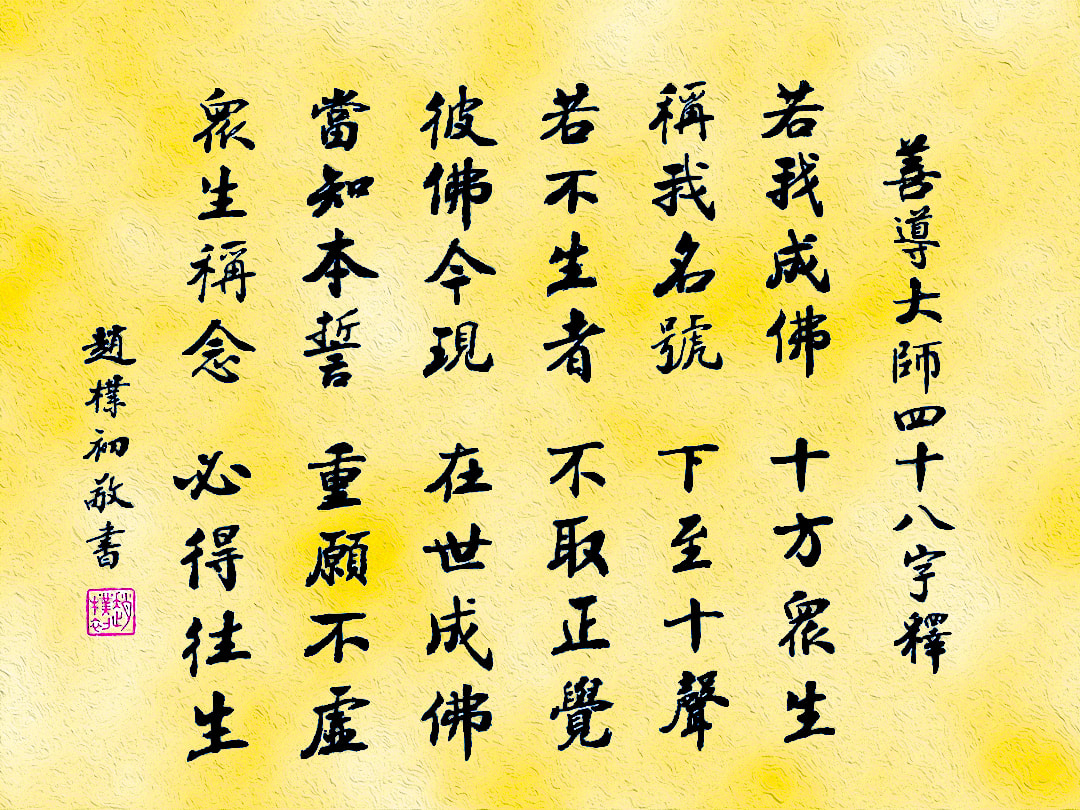 善導大師四十八字釋
若我成佛 十方眾生
稱我名號 下至十聲
若不生者 不取正覺
彼佛今現 在世成佛
當知本誓 重願不虛
眾生稱念 必得往生
趙樸初敬書
趙樸初